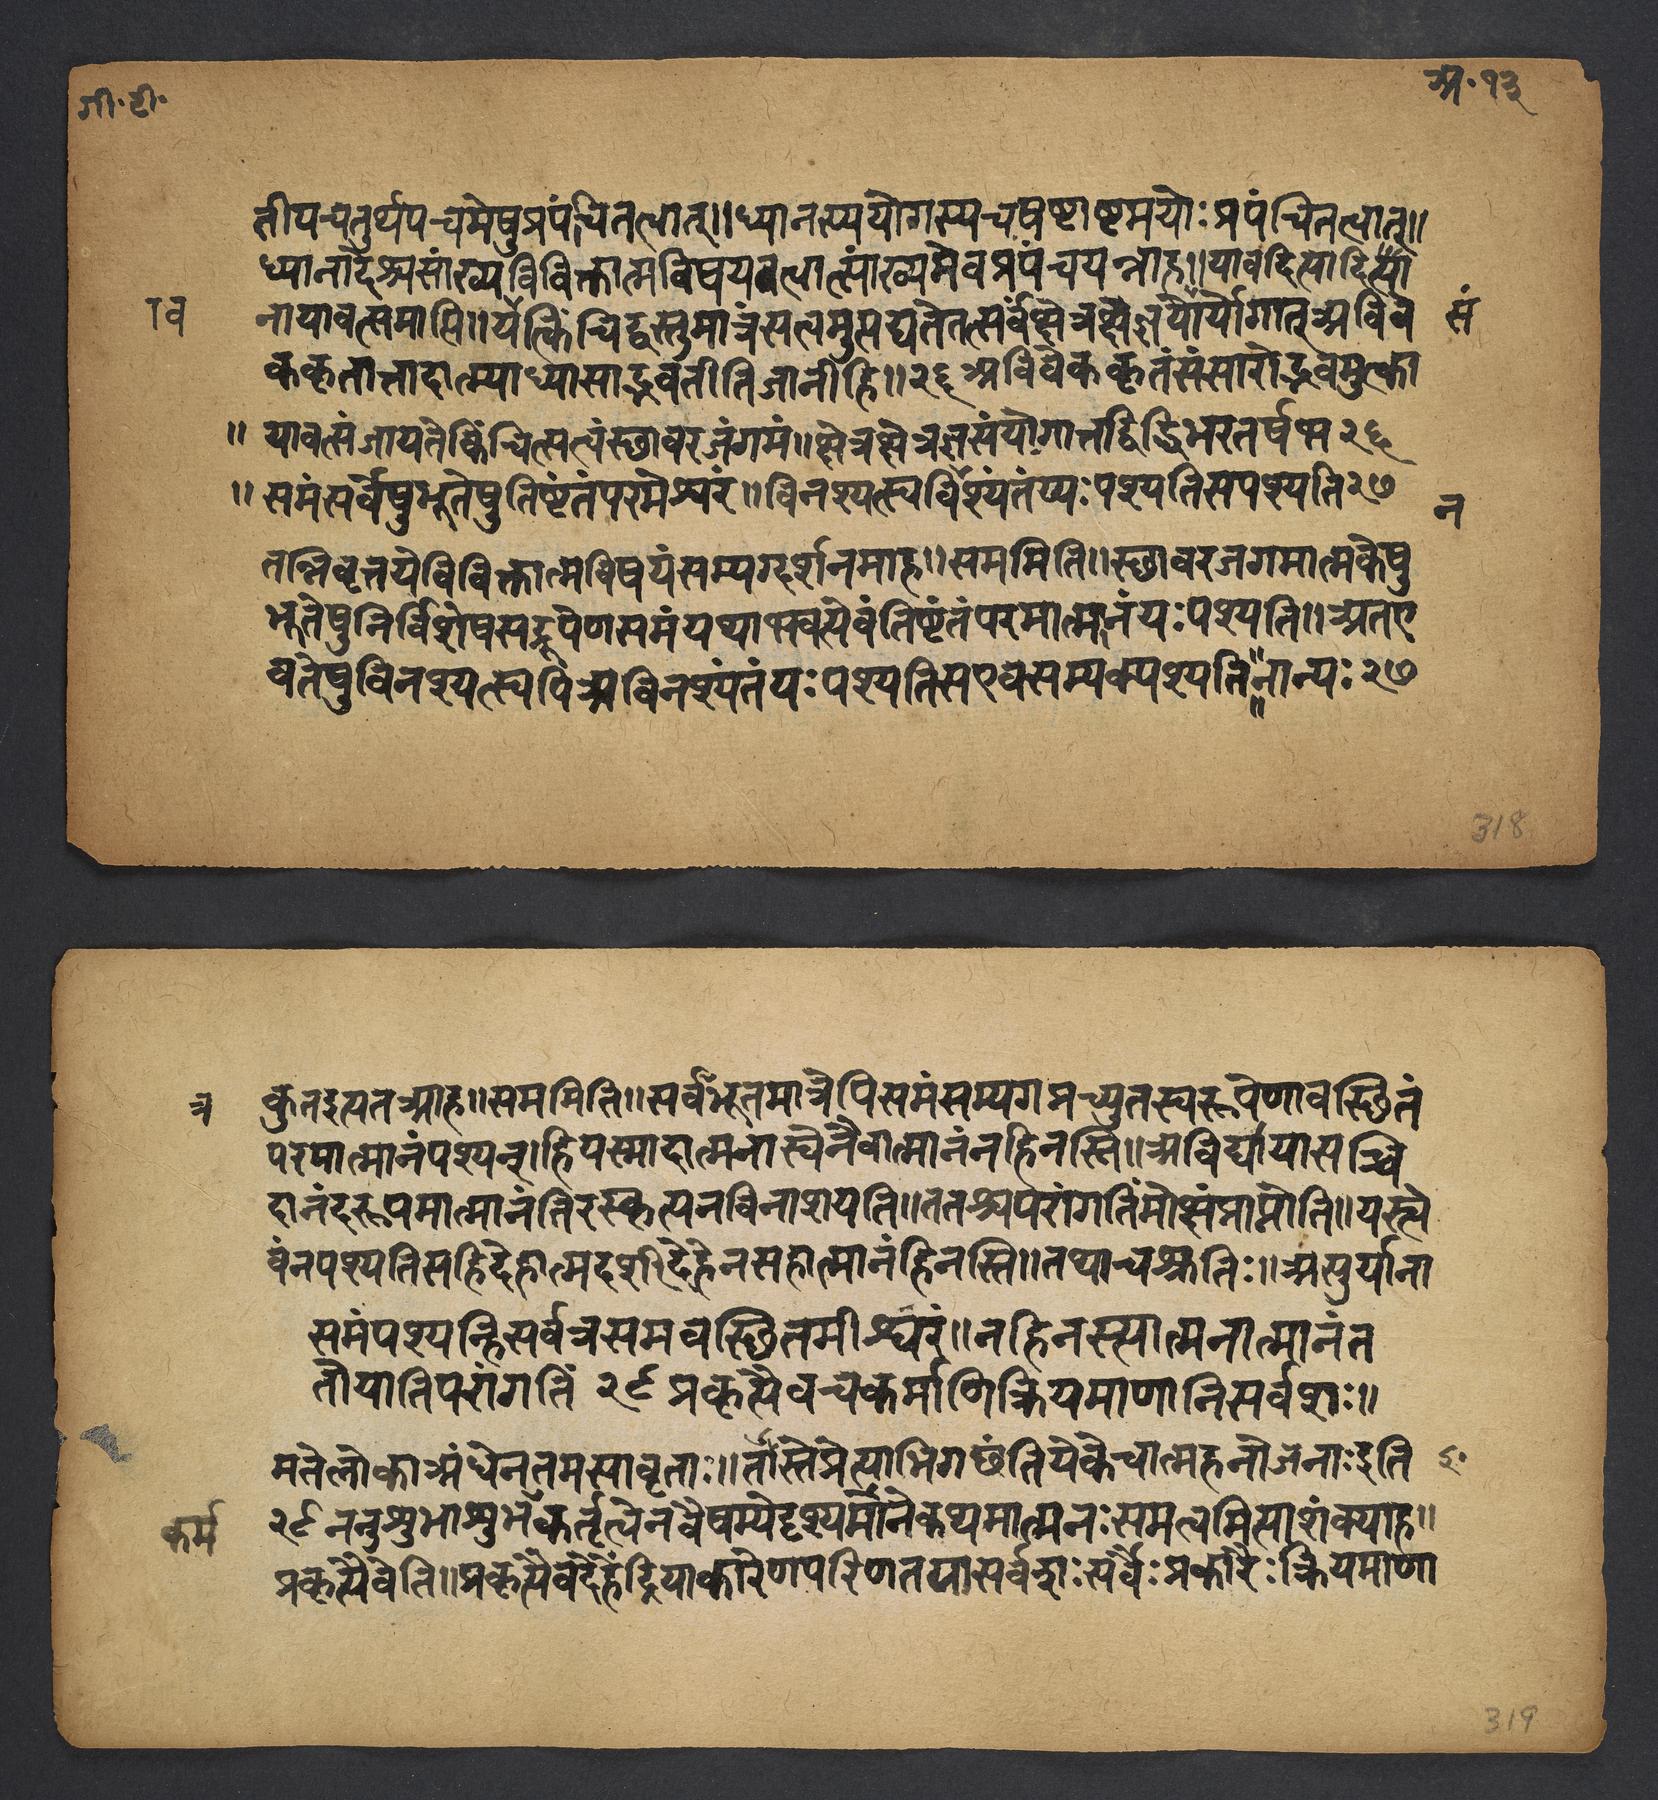 गी॰टी॰
अ॰१३
तीयचतुर्थपञ्चमेषुप्रपंचितत्वात्॥ध्यानस्ययोगस्यचषष्टाष्टमयोःप्रपंचितत्वात्॥
ध्यानादेश्चसांख्यविविक्तात्मविषयत्वात्सांख्यमेवप्रपंचयन्नाह॥यावदित्यादि
नायावत्समाप्ति॥यत्किंचिद्वस्तुमात्रंसत्वमुत्पद्यतेतत्सर्वंक्षेत्रक्षेत्रज्ञयोर्योगात्अविवे
सं
ककृतात्तादात्म्याध्यासाद्भवतीतिजानीहि॥२६अविवेककृतंसंसारोद्भवमुत्का
॥यावत्संजायतेकिंचित्सत्वंस्छावरजंगमं॥क्षेत्रक्षेत्रज्ञसंयोगात्तद्विद्धिभरतर्षभ२६
॥समंसर्वेषुभूतेषुतिष्टंतंपरमेश्वरं॥विनश्यत्स्वविश्यंतंय्यःपश्यतिसपश्यति२७
न
तन्निवृत्तयेविविक्तात्मविषयंसम्यग्दर्शनमाह॥सममिति॥स्छावरजगमात्मकेषु
भूतेषुनिर्विशेषसद्रूपेणसमंयथाभवत्येवंतिष्टंतंपरमात्मानंयःपश्यति॥अतए
वतेषुविनश्यत्स्वपिअविनश्यंतंयःपश्यतिसएवसम्यक्पश्यति॥नान्यः२७
318
त्र
कुतइत्यतआह॥सममिति॥सर्वभूतमात्रेपिसमंसम्यगप्रच्युतस्वरूपेणावस्छितं
परमात्मानंपश्यन्।हियस्मादात्मनास्वेनैवात्मानंनहिनस्ति॥अविद्यायासच्चि
दानंदरूपमात्मानंतिरस्कृत्यनविनाशयति॥ततश्चपरांगतिंमोक्षंप्राप्नोति॥यस्त्वे
वंनपश्यतिसहिदेहात्मदर्शीदेहेनसहात्मानंहिनस्ति॥तथाचश्रुतिः॥असुर्याना
समंपश्यन्हिसर्वत्रसमवस्छितमीश्वरं॥नहिनस्त्यात्मनात्मानंत
तोयातिपरांगतिं २९ प्रकृत्यैवचकर्माणिक्रियमाणानिसर्वशः॥
मतेलोकाअंधेनतमसावृताः॥तांस्तेप्रेत्याभिगछंतियेकेचात्महनोजनाःइति
कर्म
२९ननुशुभाशुभकर्तृत्वेनवैषम्येदृश्यमानेकथमात्मनःसमत्वमित्याशंक्याह॥
प्रकृत्यैवेति॥प्रकृत्यैवदेहेंद्रियाकारेणपरिणतयासर्वशःसर्वैःप्रकारैःक्रियमाणा
319